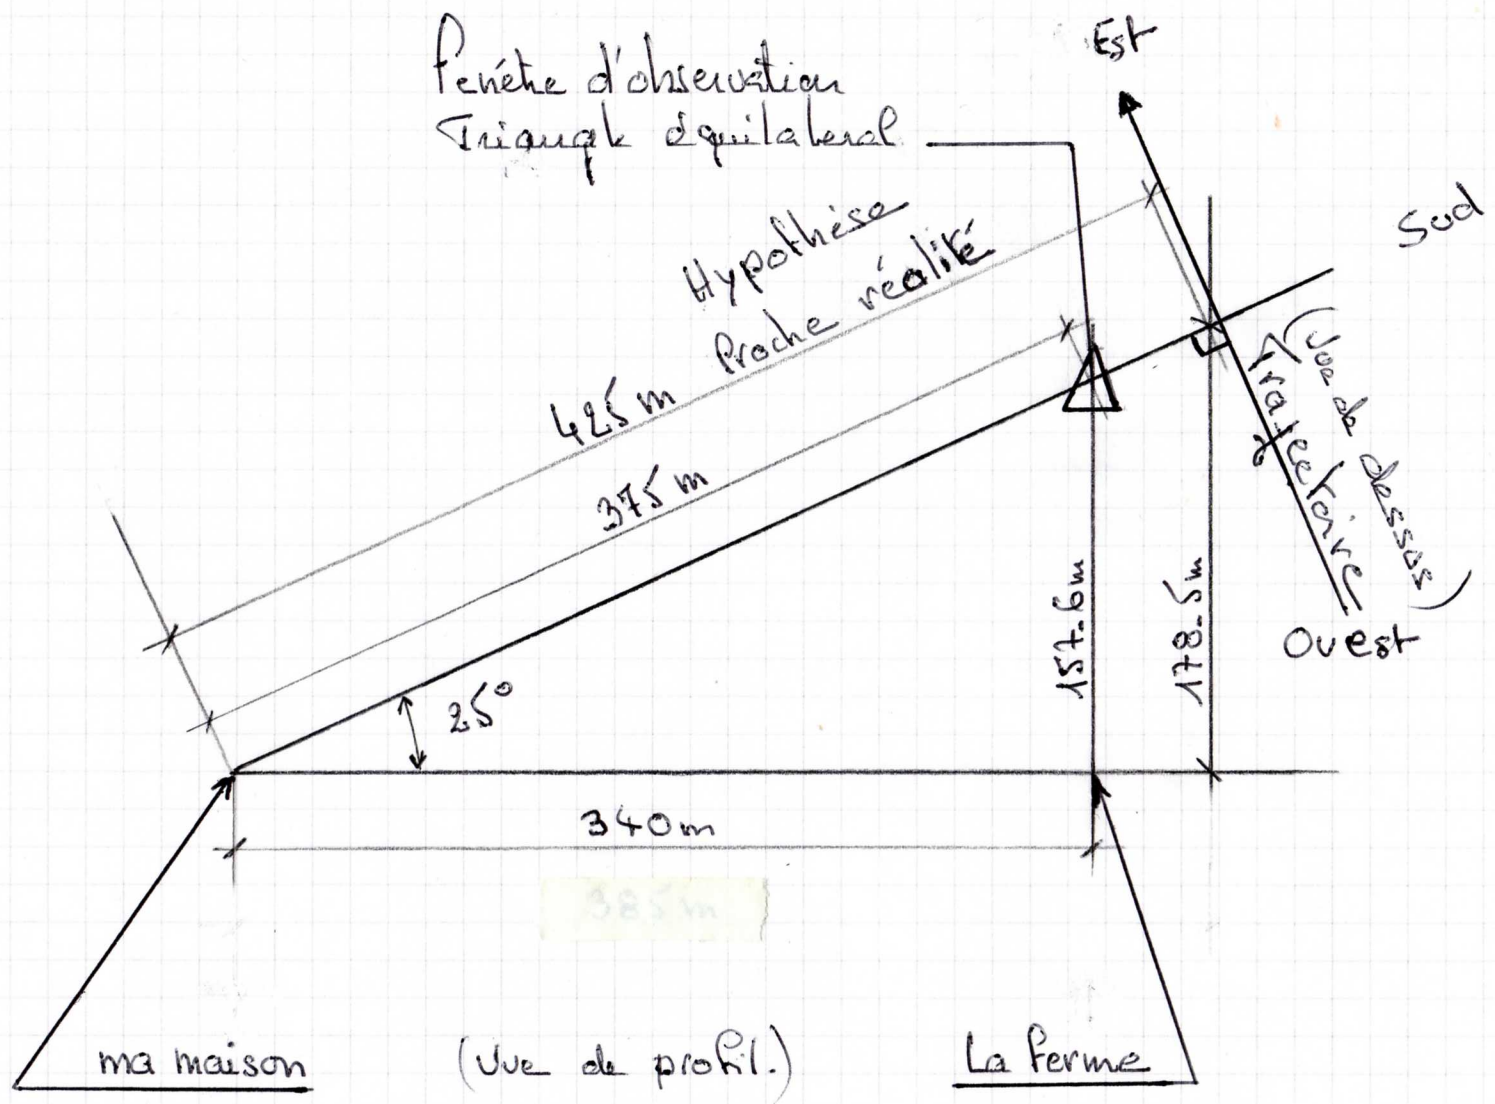 Est
Fenêtre d'observation
Triangle équilateral
Sud
Hypothèse
Proche réalité
425 m
375 m
(Vue de dessus)
Trajectoire
157.6m
178.5m
Ouest
25°
340m
385m
ma maison
(Vue de profil.)
La ferme